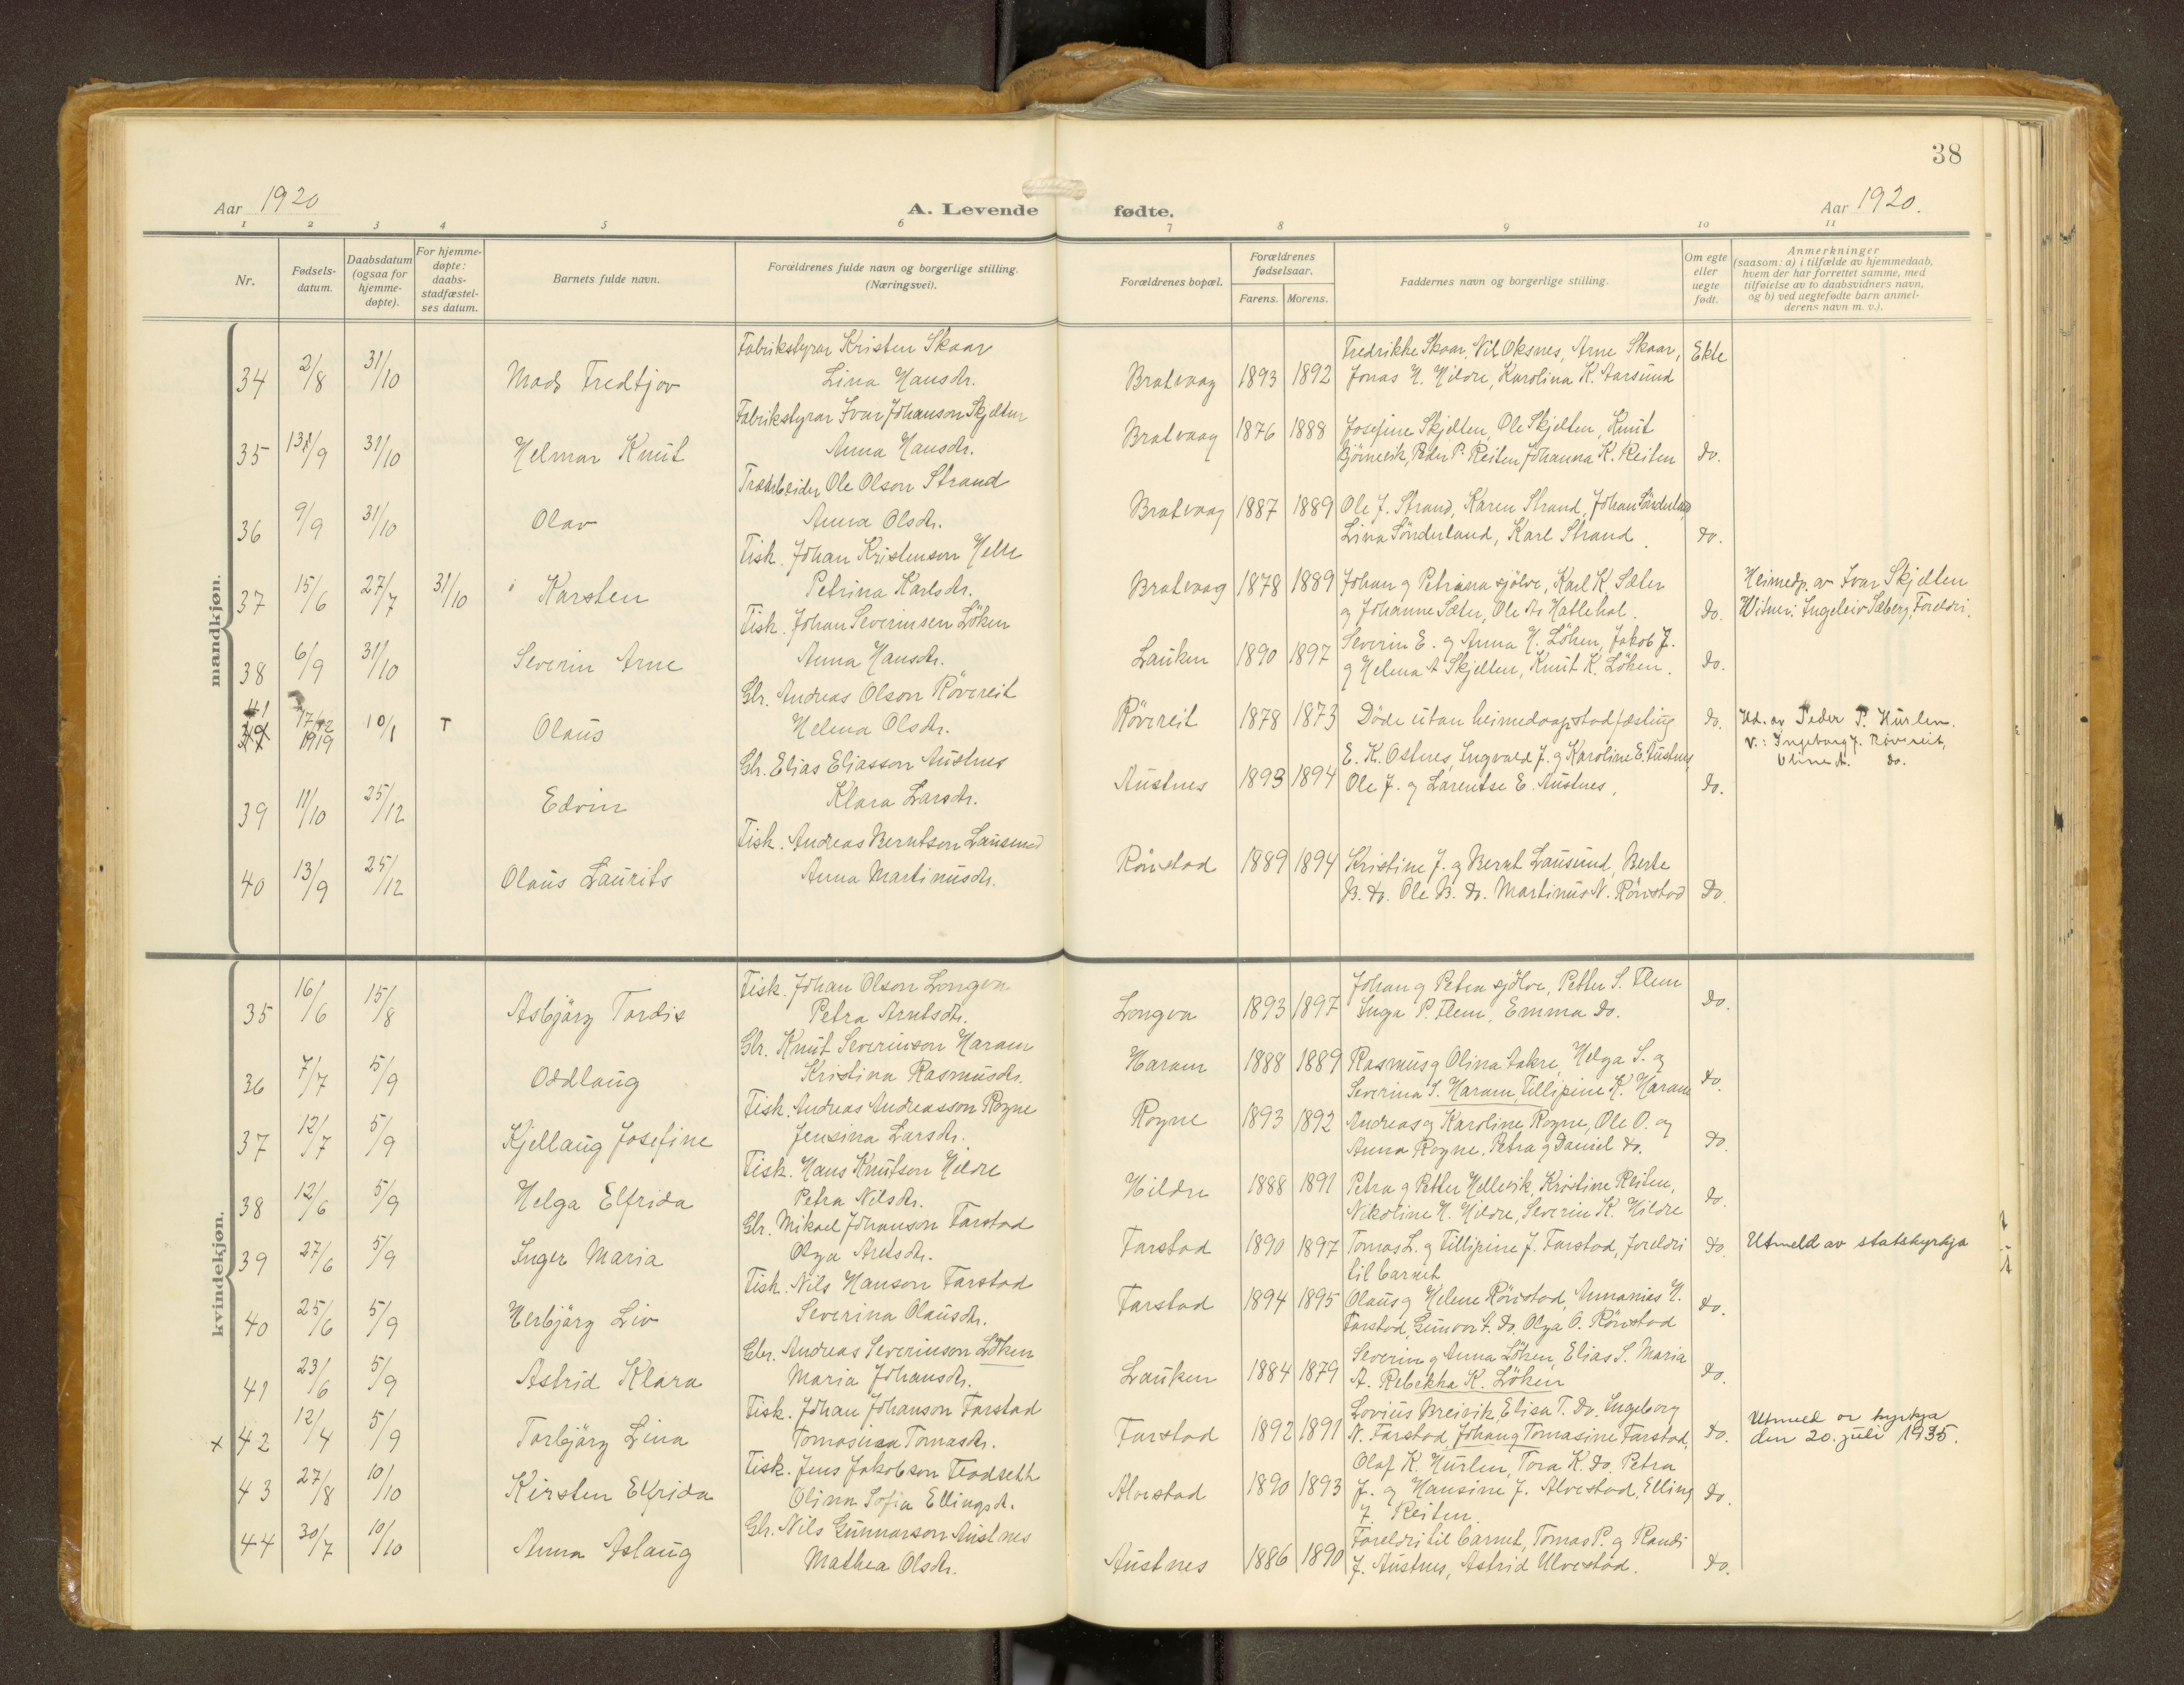 38
Aar 1920
A. Levende fødte.
Aar 1920.
1 2 3 4 5 6 7 8 9 10 11
Nr.
Fødsels-
datum.
Daabsdatum
(ogsaa for
hjemme-
døpte).
For hjemme-
døpte:
daabs-
stadfæstel-
ses datum.
Barnets fulde navn.
Forældrenes fulde navn og borgerlige stilling.
(Næringsvei).
Forældrenes bopæl.
Forældrenes
fødselsaar.
Farens. Morens.
Faddernes navn og borgerlige stilling.
Om egte
eller
uegte
født.
Anmerkninger
(saasom: a) i tilfælde av hjemmedaab,
hvem der har forrettet samme, med
tilføielse av to daabsvidners navn,
og b) ved uegtefødte barn anmel-
derens navn m. v.).
mandkjøn.
Fabrikstyrar Kristen Skaar
Fredrikke Skaar, Nil Oksnes, Arne Skaar, Ekte
34 2/8 31/10 Mads Fredtjov Lina Hansdr. Bratvaag 1893 1892 Jonas N. Hildre, Karolina K. Aarsund
Fabrikstyrar Ivar Johanson Skjelten
Bratvaag 1876 1888 Josefine Skjelten, Ole Skjelten, Knut
35 /9 31/10 Helmar Knut Anna Hansdr. Bjørnevik, Peder P. Reiten Johanna K. Reiten do.
Træarbeider Ole Olson Strand
36 9/9 31/10 Olav Anna Olsdr. Bratvaag 1887 1889 Ole J. Strand, Karen Strand, Johan Sönderland
Lina Sönderland, Karl Strand. do.
Fisk. Johan Kristenson Helle
37 15/6 27/7 31/10 Karsten Petrina Karlsdr. Bratvaag 1878 1889 Johan g Petrina sjölve, Karl K. Sæter Heimedp. av Ivar Skjelten
g Johanne Sæter, Ole A. Hatlehol. do. Witner: Ingeleiv Sæberg, Foreldri.
Fisk. Johan Severinsen Löken
Severin E. og Anna H. Löken, Jakob J.
38 6/9 31/10 Severin Arne Anna Hansdr. Lauken 1890 1897 g Helena A Skjelten, Knut K. Löken. do.
Gbr. Andreas Olson Rövereit
41 17/12 1919 10/1 T Olaus Helena Olsdr. Rövereit 1878 1873 Döde utan heimedaapstadfæsting do. Hd. av Peder P. Hurlen.
v.: Ingeborg J. Rövereit,
Oline A. do.
Gbr. Elias Eliasson Austnes
E. K. Ostnes, Ingvald J. g Karoline E. Austnes
39 11/10 25/12 Edvin Klara Larsdr. Austnes 1893 1894 Ole J. og Larentse E. Austnes, do.
Fisk. Andreas Berntson Lausund
40 13/9 25/12 Olaus Laurits Anna Martinusdr. Rönstad 1889 1894 Kristine J. og Bernt Lausund, Berte
B. do. Ole B. do. Martinus N. Rönstad do.
kvindekjøn.
Fisk. Johan Olson Longva
Johan g Petra sjölve, Petter S. Flem
35 16/6 15/8 Asbjörg Tordis Petra Arntsdr. Longva 1893 1897 Inga P. Flem, Emma do. do.
Gbr. Knut Severinson Haram
36 7/7 5/9 Oddlaug Kristina Rasmusdr. Haram 1888 1889 Rasmus g Olina Aakre, Helga S. og
Severina S. Haram, Fillipine K. Haram do.
Fisk. Andreas Andreasson Rogne
37 12/7 5/9 Kjellaug Josefine Jensina Larsdr. Rogne 1893 1892 Andreas g Karoline Rogne, Ole O. og
Anna Rogne. Petra g Daniel do. do.
Fisk. Hans Knutson Hildre
38 12/6 5/9 Helga Elfrida Petra Nilsdr. Hildre 1888 1891 Petra g Petter Hellevik, Kristine Reiten,
Nikoline N. Hildre, Severin K. Hildre do.
Gbr. Mikael Johanson Farstad
39 27/6 5/9 Inger Maria Olga Aretsdr. Farstad 1890 1897 Tomas L. g Fillipine J. Farstad, foreldri do. Utmeld av statskyrkja
til barnet
Fisk. Nils Hanson Farstad
40 25/6 5/9 Herbjörg Liv Severina Olausdr. Farstad 1894 1895 Olaus g Helene Rönstad, Annanias N.
Farstad, Gunvor A. do. Olga O. Rönstad do.
Gbr. Andreas Severinson Löken
Severin g Anna Löken, Elias S. Maria
41 23/6 5/9 Astrid Klara Maria Johansdr. Lauken 1884 1879 A. Rebekka K. Löken do.
Fisk. Johan Johanson Farstad
Lovius Breivik, Elisa T. do. Ingeborg Utmeld or kyrkja
x 42 12/4 5/9 Torbjörg Lina Tomasina Tomasdr. Farstad 1892 1891 N. Farstad, Johan g Tomasine Farstad, do. den 20. juli 1935.
Fisk. Jens Jakobson Flodseth
Olaf K. Hurlen, Tora K. do. Petra
43 27/8 10/10 Kirsten Elfrida Olina Sofia Ellingsdr. Alvestad 1890 1893 J. og Hansine J. Alvestad, Elling do.
J. Reiten.
Gbr. Nils Gunnarson Austnes
Foreldri til barnet, Tomas P. g Randi
44 30/7 10/10 Anna Aslaug Mathea Olsdr. Austnes 1886 1890 J. Austnes, Astrid Ulvestad. do.